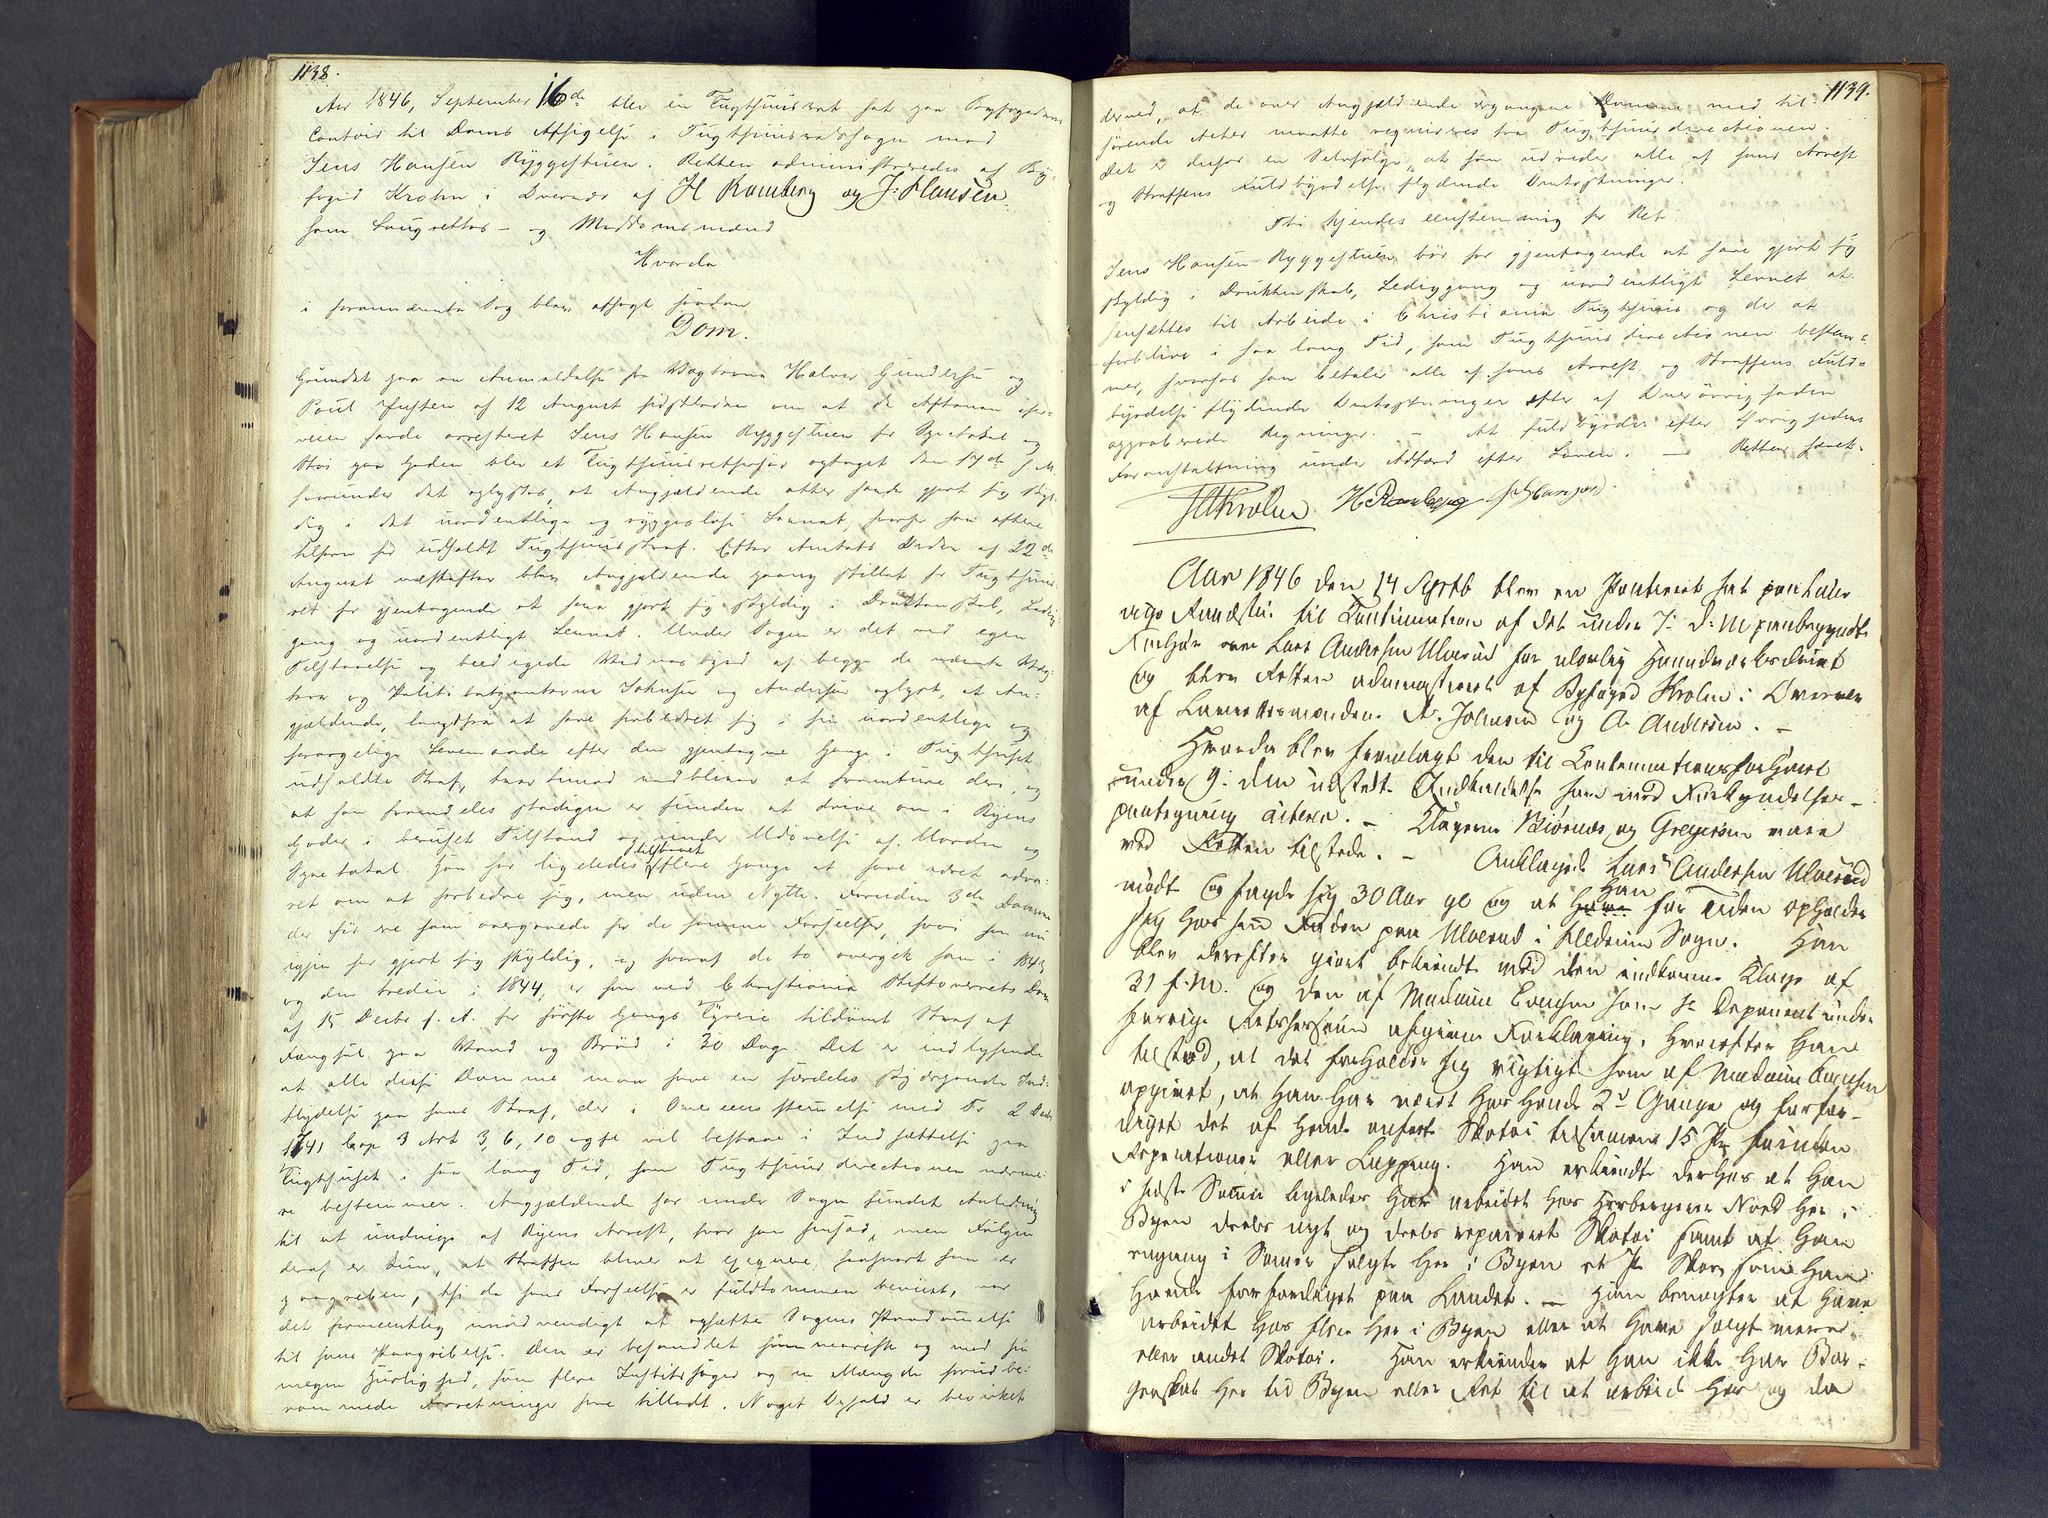 1138.
Aar 1846, September 16de blev en Tugthuusret sat paa Byfogedens
Contoir til Doms Afsigelse i Tugthuusretssagen mod
Jens Hansen Ryggestuen. Retten administreredes af By-
foged Krohn i Overvær af H Ramberg og J: Hansen
som Laugrettes- og Meddomsmænd
Hvorda
i foranmeldte Sag blev afsagt saadan
Dom.
Grundet paa en Anmeldelse fra Vægterne Halvor Gundersen og
Poul Justen af 12 August sidstleden om at de Aftenen
veien havde arresteret Jens Hansen Ryggestuen for Spectakel og
Støi paa Gaden blev et Tugthuusretsforhør optaget den 17de s. M.
hvorunder det oplystes, at Angjældende atter havde gjort sig skyl-
dig i det uordentlige og ryggesløse Levnet, hvorfor han oftere
tilforn har udholdt Tugthuusstraf. Efter Amtets Ordre af 22de
August næstefter blev Angjældende paany stillet for Tugthuus-
ret for gjentagende at have gjort sig skyldig i Drukkenskab, Ledig-
gang og uordentligt Levnet. Under Sagen er det ved egen
Tilstaaelse og beedigede Vidnesbyrd af begge de nævnte Væg-
tere og Politibetjenterne Johnsen og Andersen oplyst, at An-
gjældende, langtfra at have forbedret sig i sin uordentlige og
forargelige Levemaade efter den gjentagne Gange i Tugthuset
udholdte Straf, tvertimod vedbliver at fremture deri, og
at han fremdeles stadigen er funden at drive om i Byens
Gader i beruset Tilstand og under Udøvelse af Uorden og
Spectakel. Han har ligeledes tilstaaet flere Gange at have været adva-
ret om at forbedre sig, men uden Nytte. Foruden 3de Domme
der før ere ham overgaaede for de samme Forseelser, hvori han nu
igjen har gjort sig skyldig, og hvoraf de to overgik ham i 1843
og den tredie i 1844, er han ved Christiania Stiftsoverrets Dom
af 15 Decbr f. A. for første Gangs Tyverie tildømt Straf af
Fængsel paa Vand og Brød i 30 Dage. Det er indlysende
at alle disse Domme maa have en særdeles skjærpende Ind-
flydelse paa hans Straf, der i Overeensstemmelse med Fr 2 Decbr
1741 Cap 3 Art 3, 6, 10 ogsaa vil bestaae i Indsættelse paa
Tugthuset i saa lang Tid, som Tugthuusdirectionen nærme-
re bestemmer. Angjældende har under Sagen fundet Anledning
til at undvige af Byens Arrest, hvor han hensad, men Følgen
deraf er kun, at Straffen bliver at exequere, saasnart han er
paagreben, thi da hans Forseelse er fuldkommen beviist, var
det formeentlig unødvendigt at opsætte Sagens Paadømmelse
til hans Paagribelse. Den er behandlet summarisk og med saa
megen Hurtighed, som flere Justitssager og en Mængde forudbe-
rammede Forretninger have tilladt. Noget Ophold er bevirket
1139.
derved, at de over Angjældende ergangne Domme med til-
hørende Acter maatte requireres fra Tugthuusdirectionen.
Det er derfor en Selvfølge at han udreder alle af hans Arrest
og Straffens Fuldbyrdelse flydende Omkostninger.
Thi kjendes eenstemmig for Ret
Jens Hansen Ryggestuen bør for gjentagende at have gjort sig
skyldig i Drukkenskab, Lediggang og uordentligt Levnet at
hensættes til Arbeide i Christiania Tugthuus og der at
forblive i saa lang Tid, som Tugthuusdirectionen bestem-
mer, hvorhos han betaler alle af hans Arrest og Straffens Fuld-
byrdelse flydende Omkostninger efter af Overøvrigheden
approberede Regninger. – At fuldbyrdes efter Øvrighedens
Foranstaltning under Adfærd efter Loven. – Retten hævet.
Krohn H Ramberg J Hansen
Aar 1846 den 14 Septb blev en Politieret sat paa Laur
vigs Raadstue til Continuation af det under 7: d: M paabegyndte
Forhør over Lars Andersen Ulverud for ulovlig Haandværksdrivt
og blev Retten administreret af Byfoged Krohn i Overvær
af Laurettesmændene A. Johnsen og A. Andersen. –
Hvorda blev fremlagt den til Continuationsforhøret
under 9: dM udstedte Indkaldelse som med Forkyndelses-
paategning citeres. – Klagerne Biørnes og Gregersen vare
ved Retten tilstede. – Anklagede Lars Andersen Ulverud
mødte og sagde sig 30 Aar gl og at Han for Tiden opholder
sig hos sin Fader paa Ulverud i Hedrum Sogn. Han
blev derefter giort bekiendt med den indkomne Klage af
31 f. M. og den af Madame Evensen som 1ste Deponent under
forrige Retsforhør afgivne Forklaring, hvorefter Han
tilstod, at det forholder sig rigtigt som af Madame Evensen
opgivet, at Han har været hos Hende 2de Gange og forfær-
diget det af Hende anførte Skotøi tilsammen 15 Par foruden
Reparationer eller Lapping. Han erkiendte derhos at Han
i sidste Somer ligeledes har arbeidet hos Herbergerer Nord her i
Byen deels nyt og deels repareret Skotøi samt at Han
engang i Somer solgte her i Byen et Par Skoe som Han
Havde forfærdiget paa Landet. – Han benægter at have
arbeidet hos flere her i Byen eller at have solgt mere
eller andet Skotøi. Han erkiender at Han ikke har Bor-
gerskab her til Byen eller Ret til at arbeide her og da